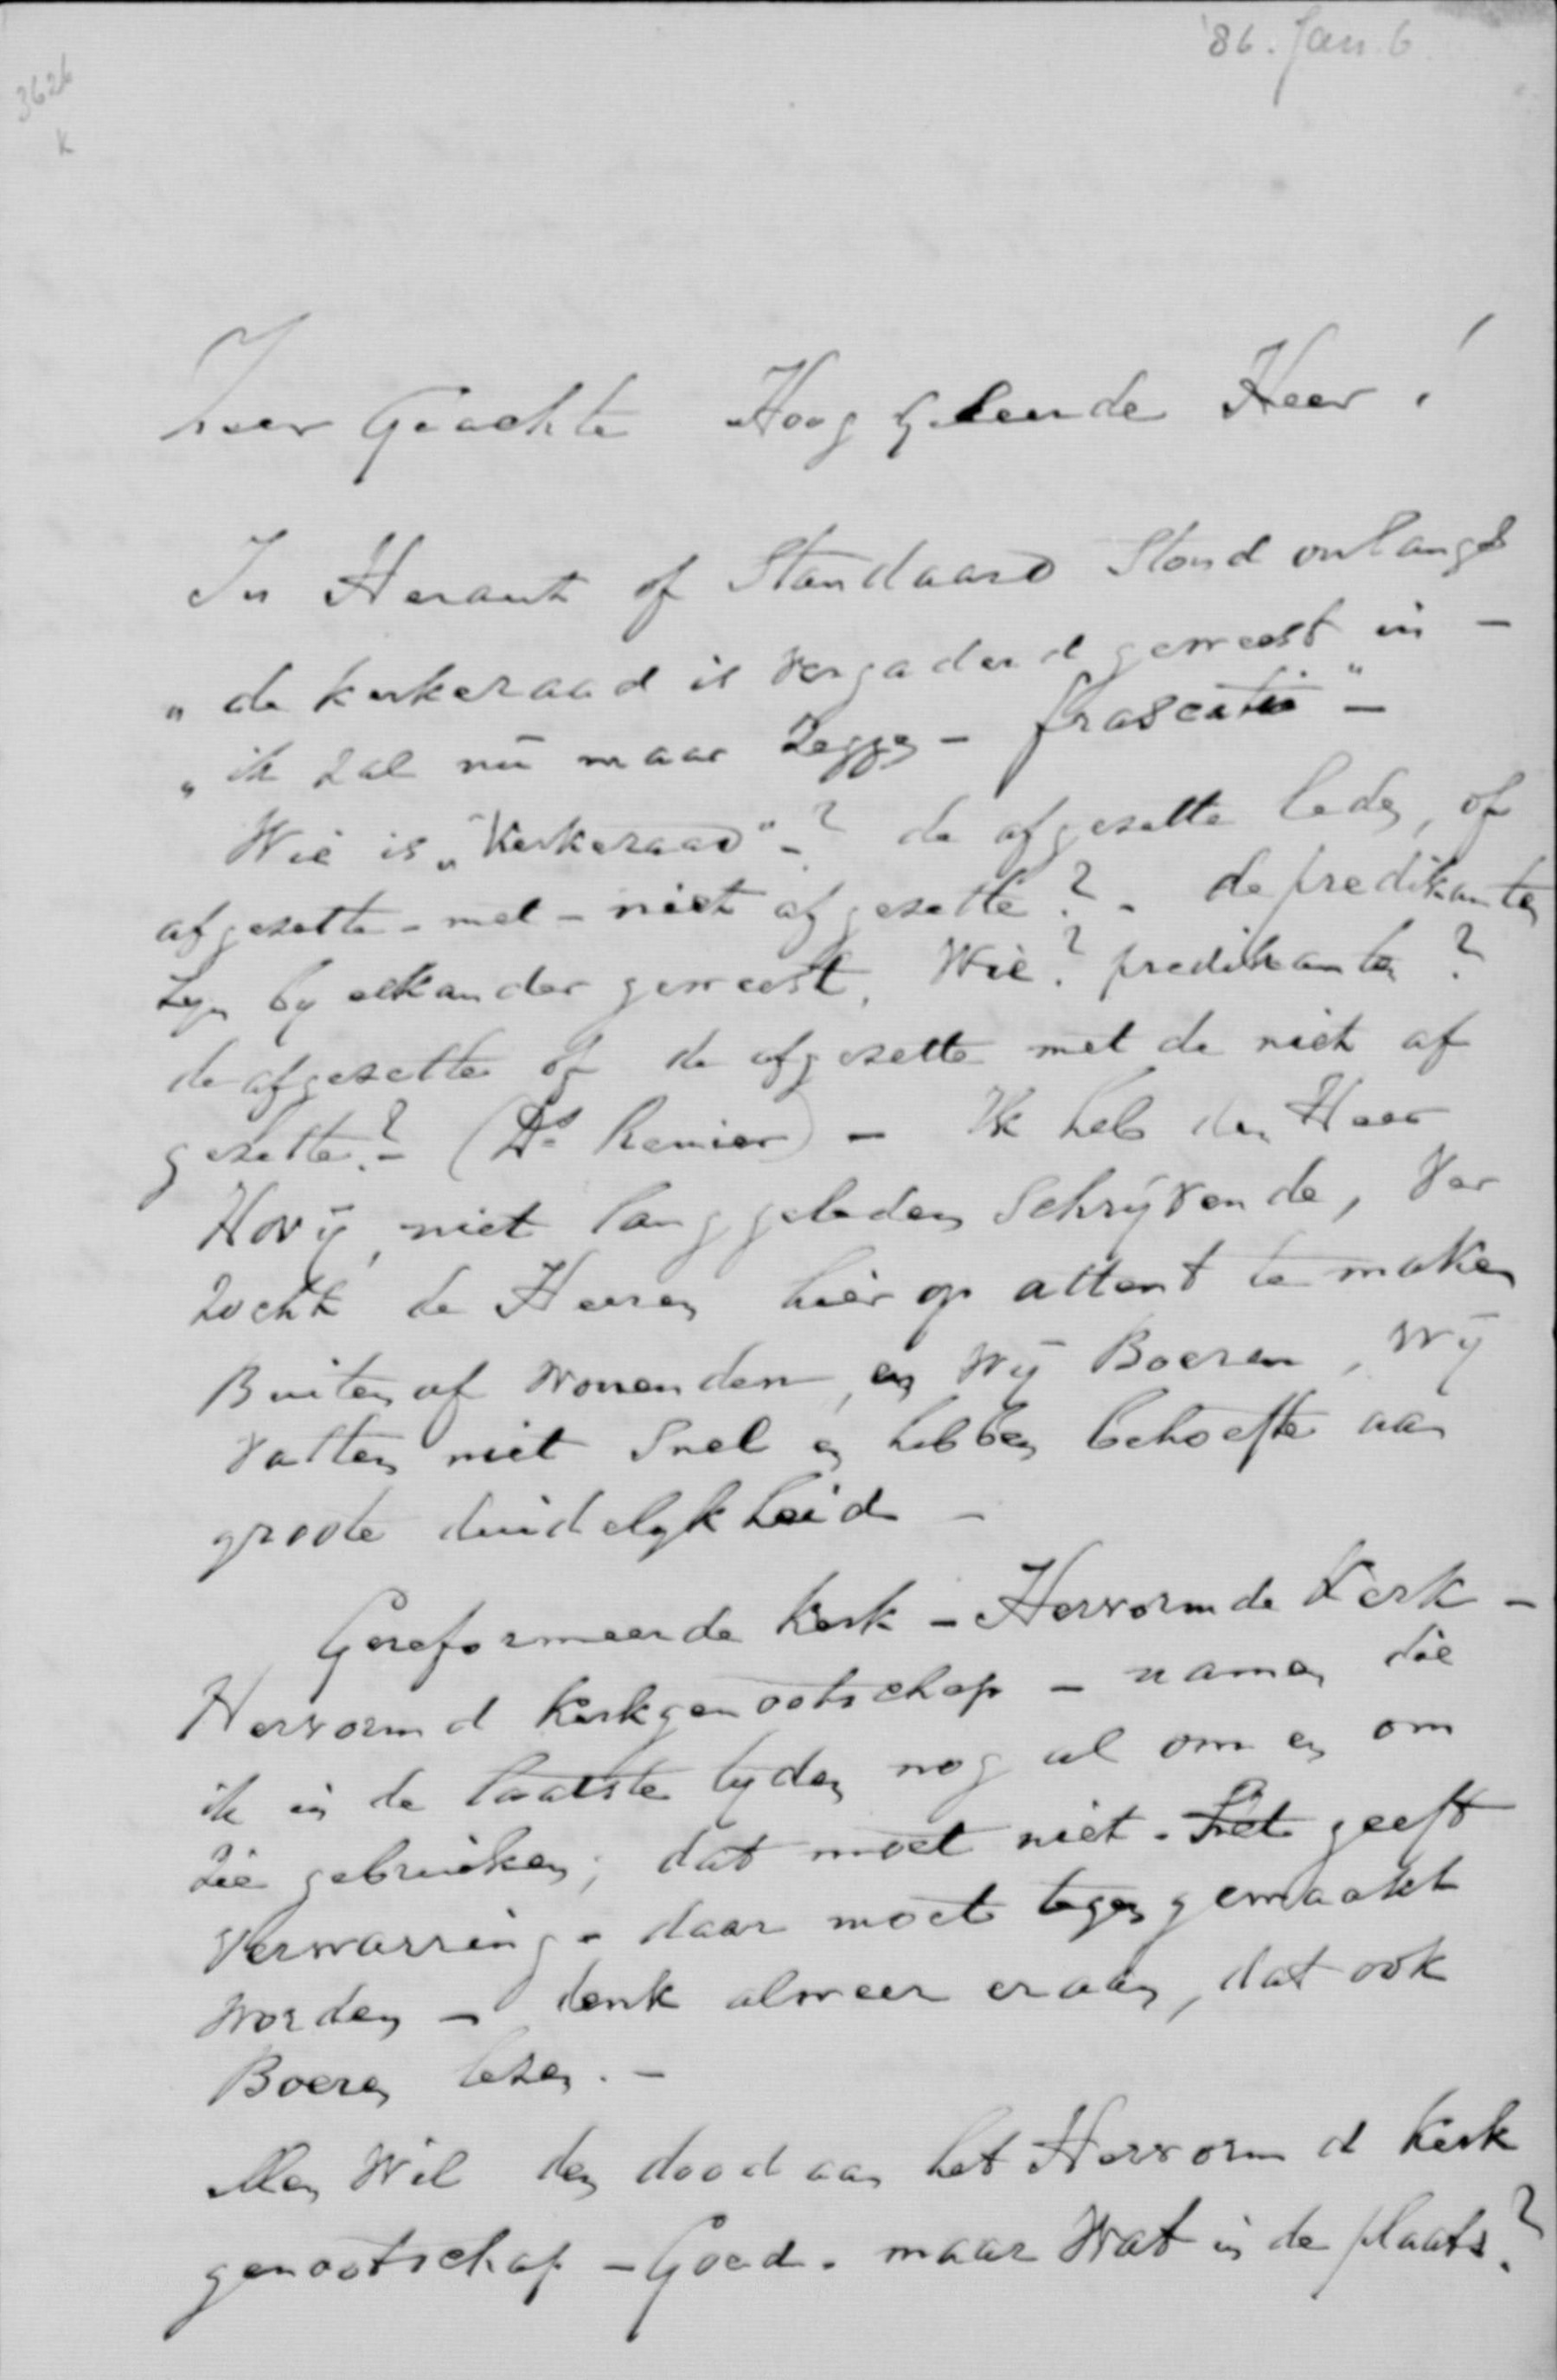 '86. Jan. 6
3626
k
Zeer Geachte Hoog Geleerde Heer!
In Heraut of Standaard Stond onlangs
„de kerkeraad is vergaderd geweest in –
„ik zal nu maar zeggen – frascatie" –
Wie is „Kerkeraad" – ? de afgezette leden, of
afgezette – met – niet afgezette? – de predikanten
zyn by elkander geweest, Wie? predikanten?
de afgezette of de afgezette met de niet af
gezette? – (Ds Renier) – Ik heb den Heer
Hovÿ, niet lang geleden Schrijvende, Ver
zocht de Heeren hier op attent te maken
Buiten af wonenden, en Wij Boeren, Wij
Vatten niet Snel en hebben behoefte aan
groote duidelykheid –
Gereformeerde Kerk – Hervormde Kerk –
Hervormd Kerkgenootschap – namen die
ik in de laatste tyden nog al om en om
zie gebruiken; dat moet niet. Het geeft
Verwarring – daar moet tegen gewaakt
worden – denk alweer eraan, dat ook
Boeren lezen. –
Men Wil den dood aan het Hervormd Kerk
genootschap – Goed. maar Wat in de plaats?